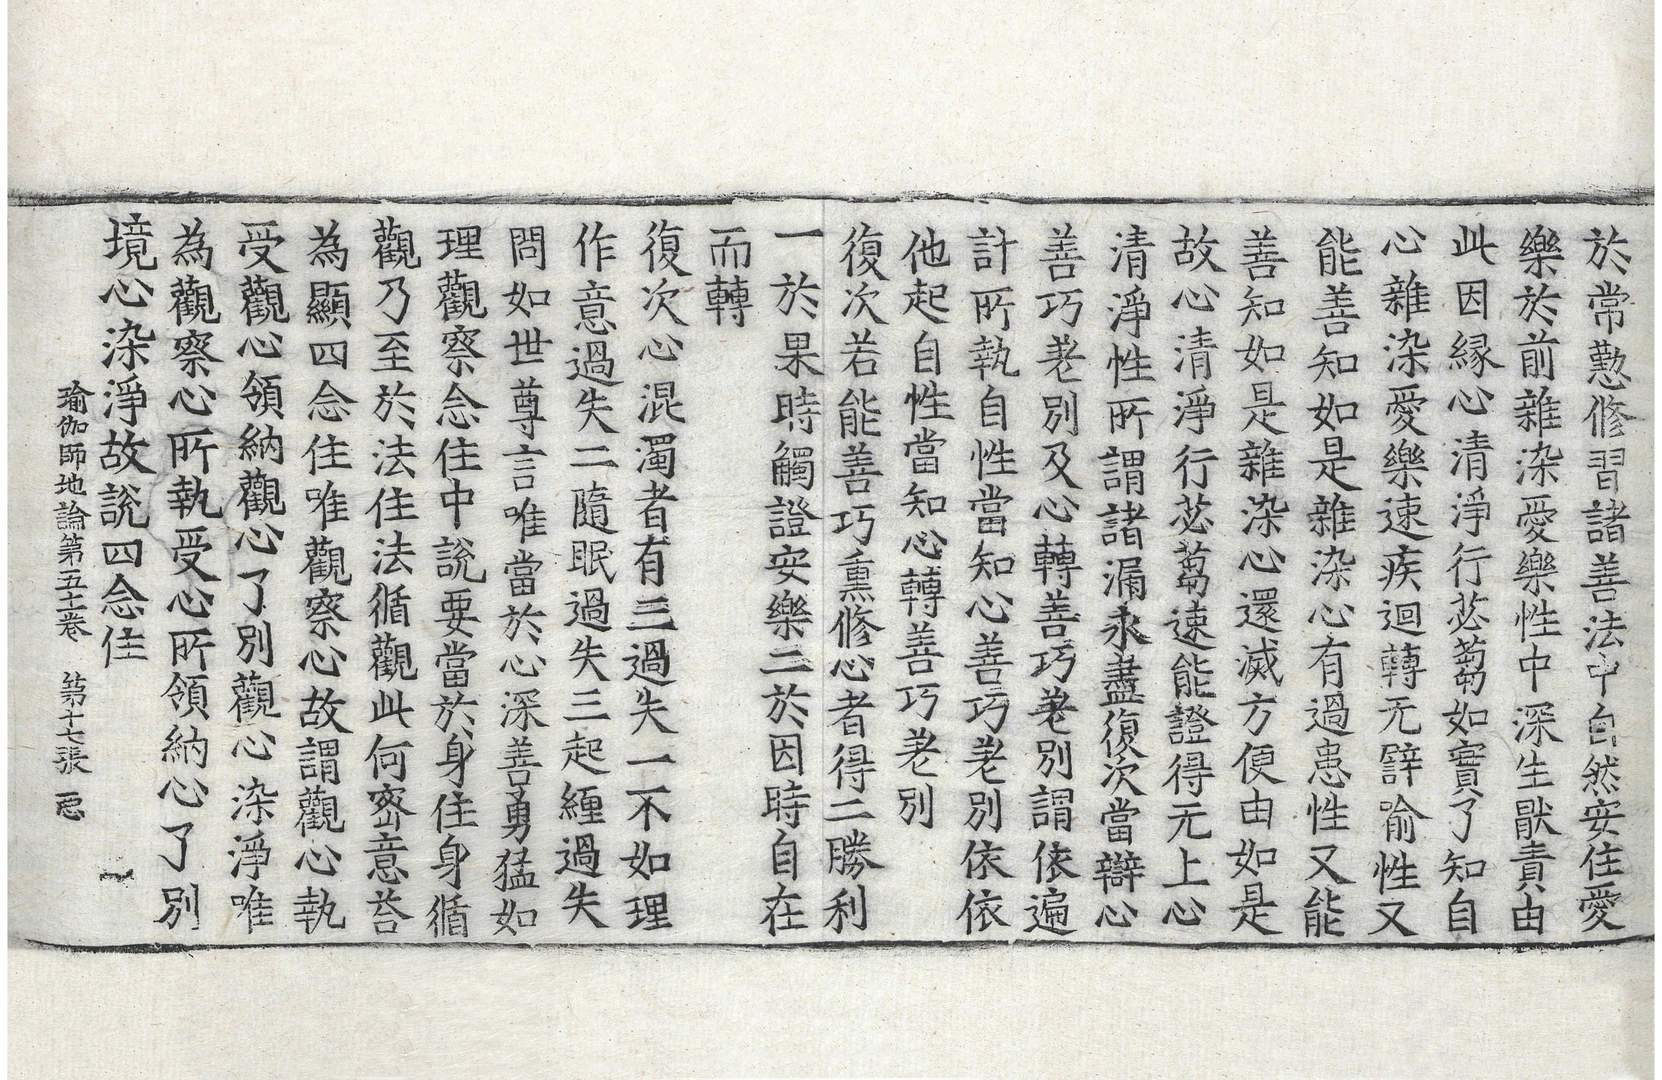 於常懃修習諸善法中自然安住愛
樂於前雜染愛樂性中深生猒責由
此因緣心清淨行苾蒭如實了知自
心雜染愛樂速疾迴轉无譬喻性又
能善知如是雜染心有過患性又能
善知如是雜染心還滅方便由如是
故心清淨行苾蒭速能證得无上心
清淨性所謂諸漏永盡復次當辯心
善巧差別及心轉善巧差別謂依遍
計所執自性當知心善巧差別依依
他起自性當知心轉善巧差別
復次若能善巧熏修心者得二勝利
一於果時觸證安樂二於因時自在
而轉
復次心混濁者有三過失一不如理
作意過失二隨眠過失三起纏過失
問如世尊言唯當於心深善勇猛如
理觀察念住中說要當於身住身循
觀乃至於法住法循觀此何密意荅
為顯四念住唯觀察心故謂觀心執
受觀心領納觀心了別觀心染淨唯
為觀察心所執受心所領納心了別
境心染淨故說四念住
瑜伽師地論第五十卷　第十七張　惡